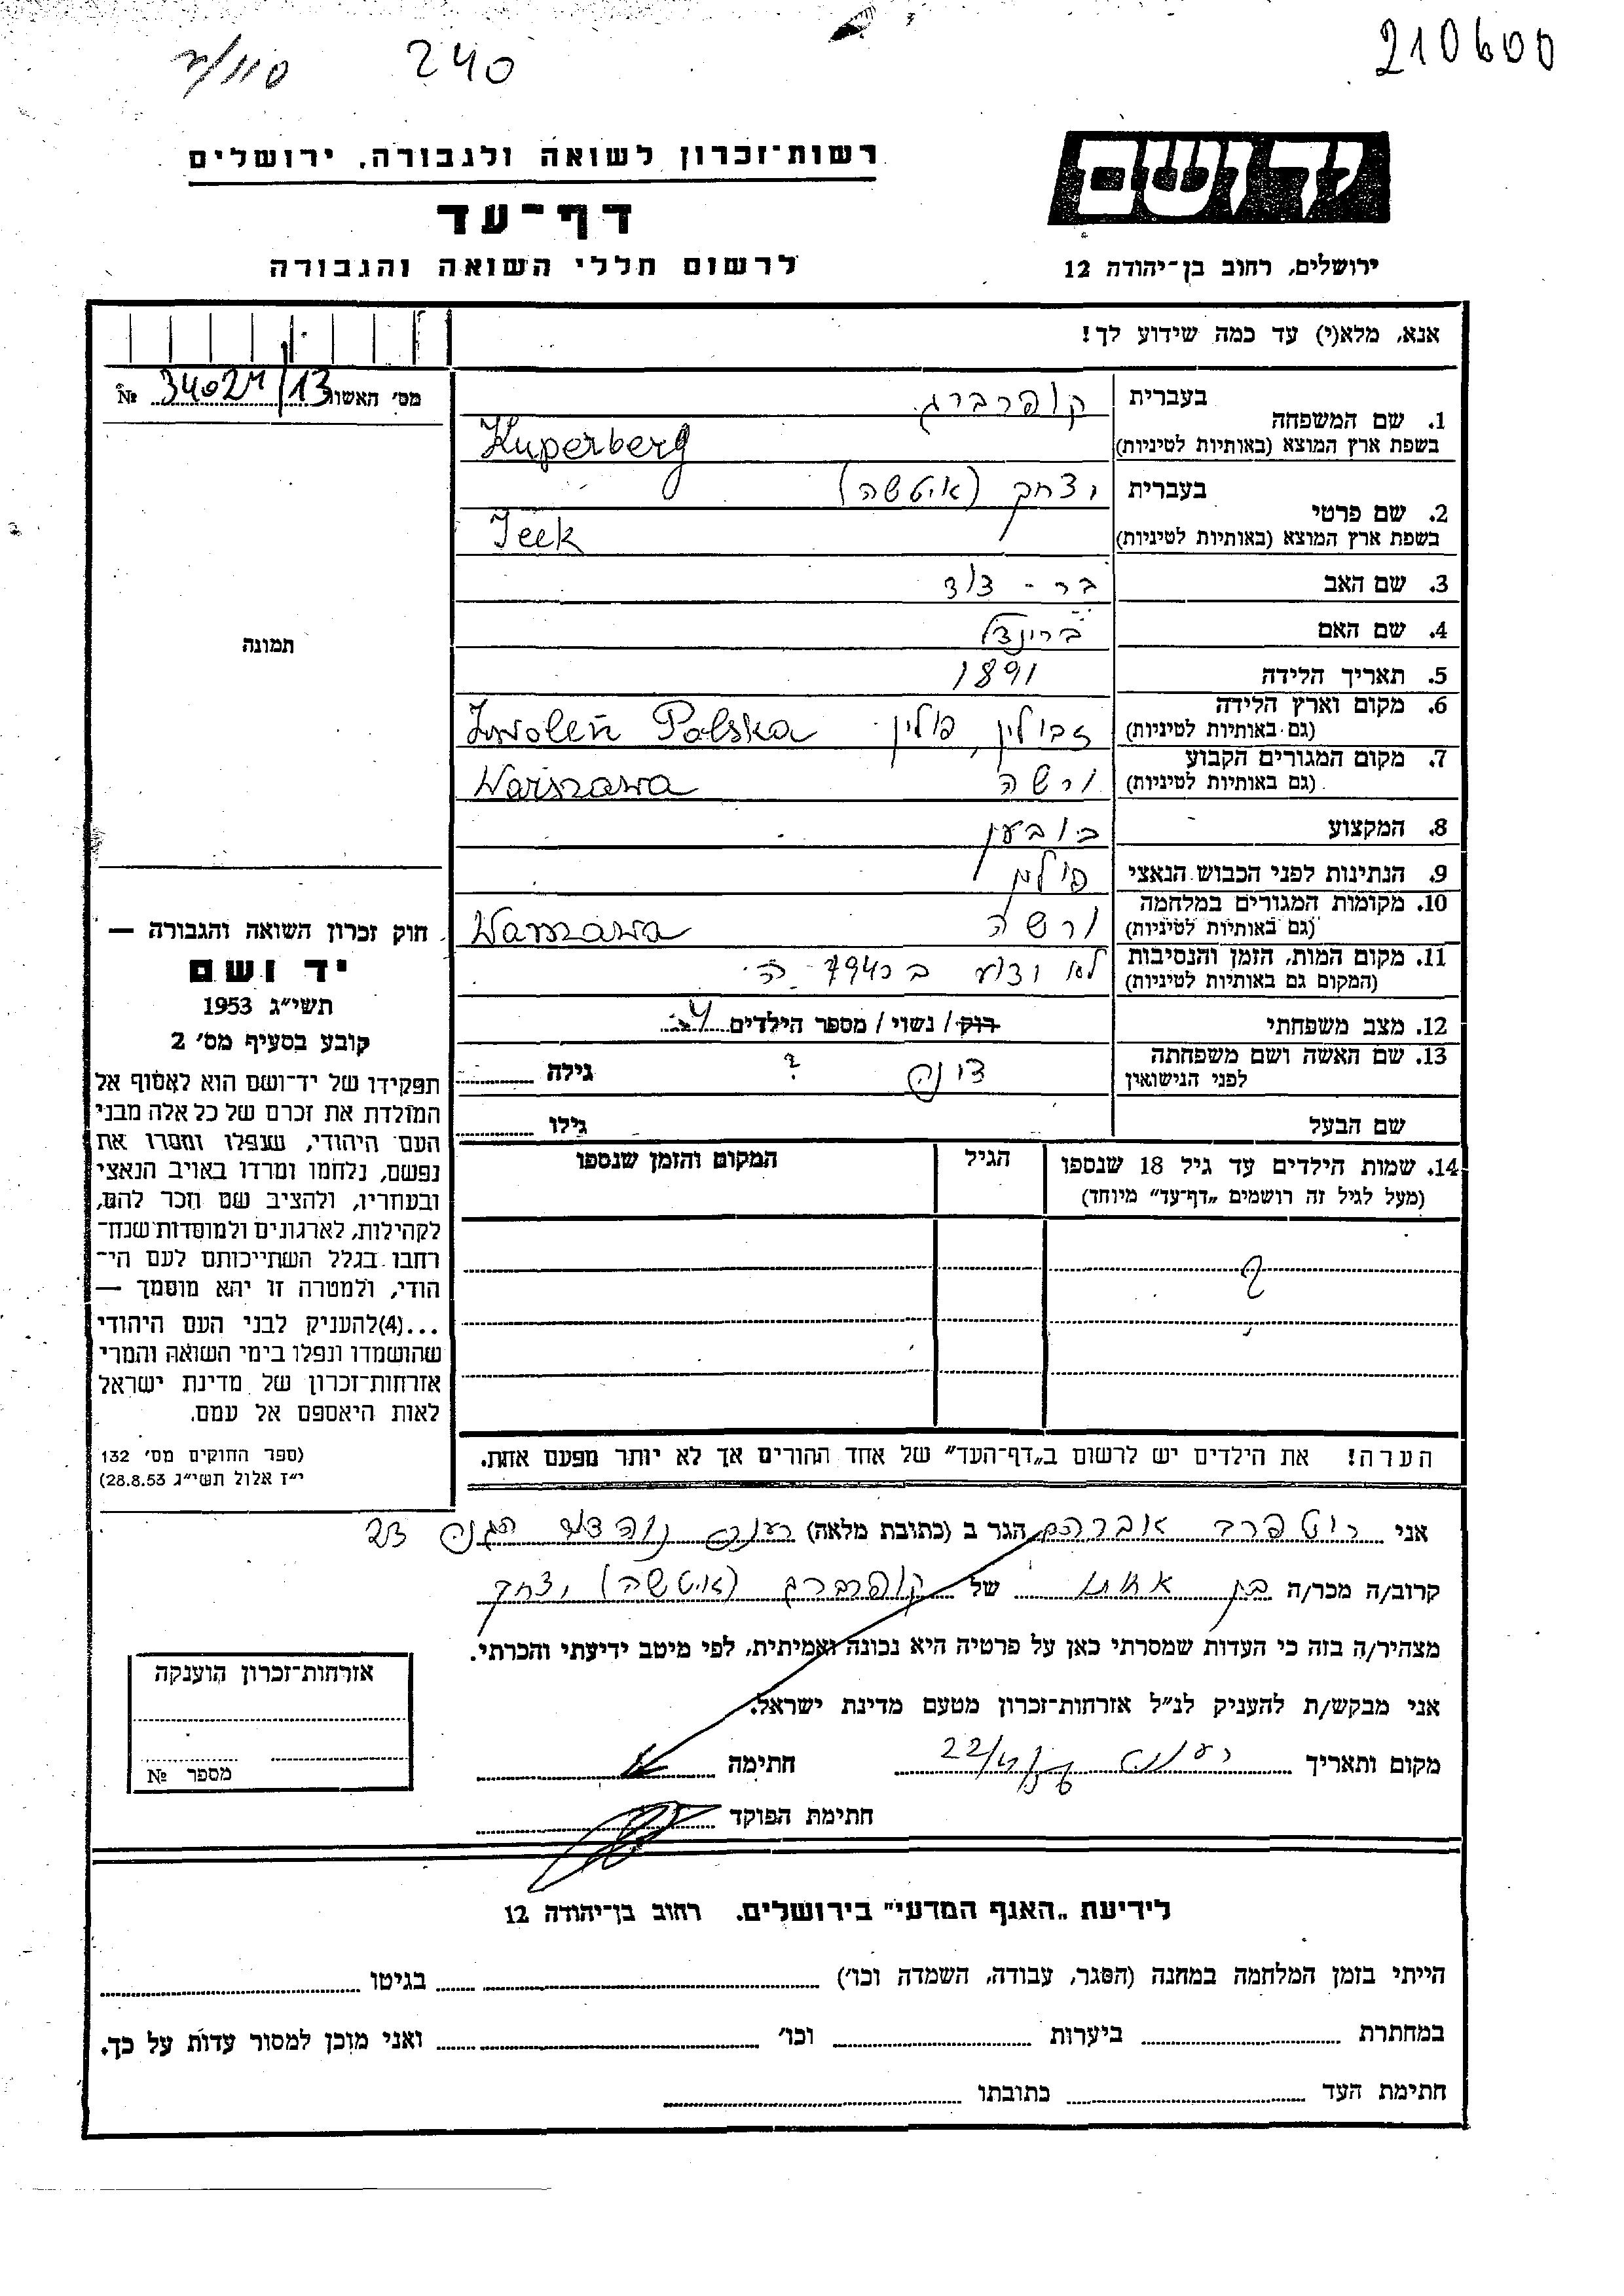 210600
240
יד ושם
רשות־זכרון לשואה ולגבורה, ירושלים
דף־עד
לרשום חללי השואה והגבורה
ירושלים, רחוב בן־יהודה 12
אנא, מלא(י) עד כמה שידוע לך!
מס' האשה 34027/13 №
תמונה
1. שם המשפחה
בעברית קופרברג
בשפת ארץ המוצא (באותיות לטיניות) Kuperberg
2. שם פרטי
בעברית יצחק (איטשה)
בשפת ארץ המוצא (באותיות לטיניות) Icek
3. שם האב בר - דוד
4. שם האם בריינדל
5. תאריך הלידה 1891
6. מקום וארץ הלידה
(גם באותיות לטיניות) זבולין, פולין. Zwoleń Polska
7. מקום המגורים הקבוע
(גם באותיות לטיניות) ורשה Warszawa
8. המקצוע
9. הנתינות לפני הכבוש הנאצי
10. מקומות המגורים במלחמה
(גם באותיות לטיניות) ורשה Warszawa
11. מקום המות, הזמן והנסיבות
(המקום גם באותיות לטיניות) לא ידוע
12. מצב משפחתי רוק / נשוי / מספר הילדים 4
13. שם האשה ושם משפחתה
לפני הנישואין ? גילה
שם הבעל גילו
14. שמות הילדים עד גיל 18 שנספו
(מעל לגיל זה רושמים „דף־עד" מיוחד)
הגיל
המקום והזמן שנספו
?
הערה! את הילדים יש לרשום ב„דף־העד" של אחד ההורים אך לא יותר מפעם אחת.
חוק זכרון השואה והגבורה —
יד ושם
תשי״ג 1953
קובע בסעיף מס' 2
תפקידו של יד־ושם הוא לאסוף אל
המולדת את זכרם של כל אלה מבני
העם היהודי, שנפלו ומסרו את
נפשם, נלחמו ומרדו באויב הנאצי
ובעוזריו, ולהציב שם וזכר להם,
לקהילות, לארגונים ולמוסדות שנח־
רבו בגלל השתייכותם לעם הי־
הודי, ולמטרה זו יהא מוסמך —
...(4) להעניק לבני העם היהודי
שהושמדו ונפלו בימי השואה והמרי
אזרחות־זכרון של מדינת ישראל
לאות היאספם אל עמם.
(ספר החוקים מס' 132
י״ז אלול תשי״ג 28.8.53)
אני רוטפרב אברהם הגר ב (כתובת מלאה) רעננה
קרוב/ה מכר/ה בן אחות של קופרברג (איטשה) יצחק
מצהיר/ה בזה כי העדות שמסרתי כאן על פרטיה היא נכונה ואמיתית, לפי מיטב ידיעתי והכרתי.
אני מבקש/ת להעניק לנ״ל אזרחות־זכרון מטעם מדינת ישראל.
מקום ותאריך רעננה חתימה
חתימת הפוקד
אזרחות־זכרון הוענקה
מספר №
לידיעת „האגף המדעי" בירושלים, רחוב בן־יהודה 12
הייתי בזמן המלחמה במחנה (הסגר, עבודה, השמדה וכו') בגיטו
במחתרת ביערות וכו' ואני מוכן למסור עדות על כך.
חתימת העד כתובתו